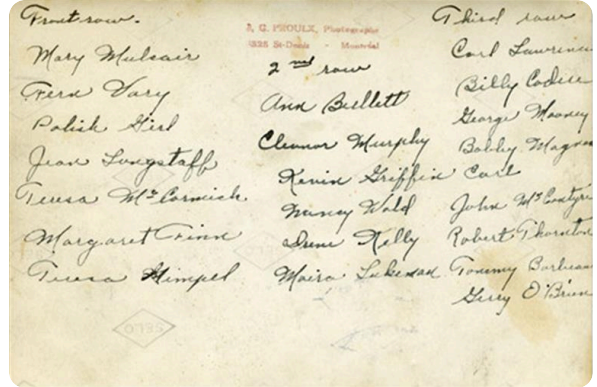 Front row.
Mary Mulsair
Fern Vary
Polish Girl
Jean Longstaff
Teresa McCormick
Margaret Finn
Teresa Himpel
J. G. PROULX, Photographe
St-Denis - Montréal
2nd row
Ann Bullett
Eleanor Murphy
Kevin Griffin
Nancy Wald
Irene Kelly
Moira Lukeman
Third row
Carl Lawrence
Billy
George Mooney
Bobby
Carl
John
Robert Thornton
Tommy
Gerry O'Brien